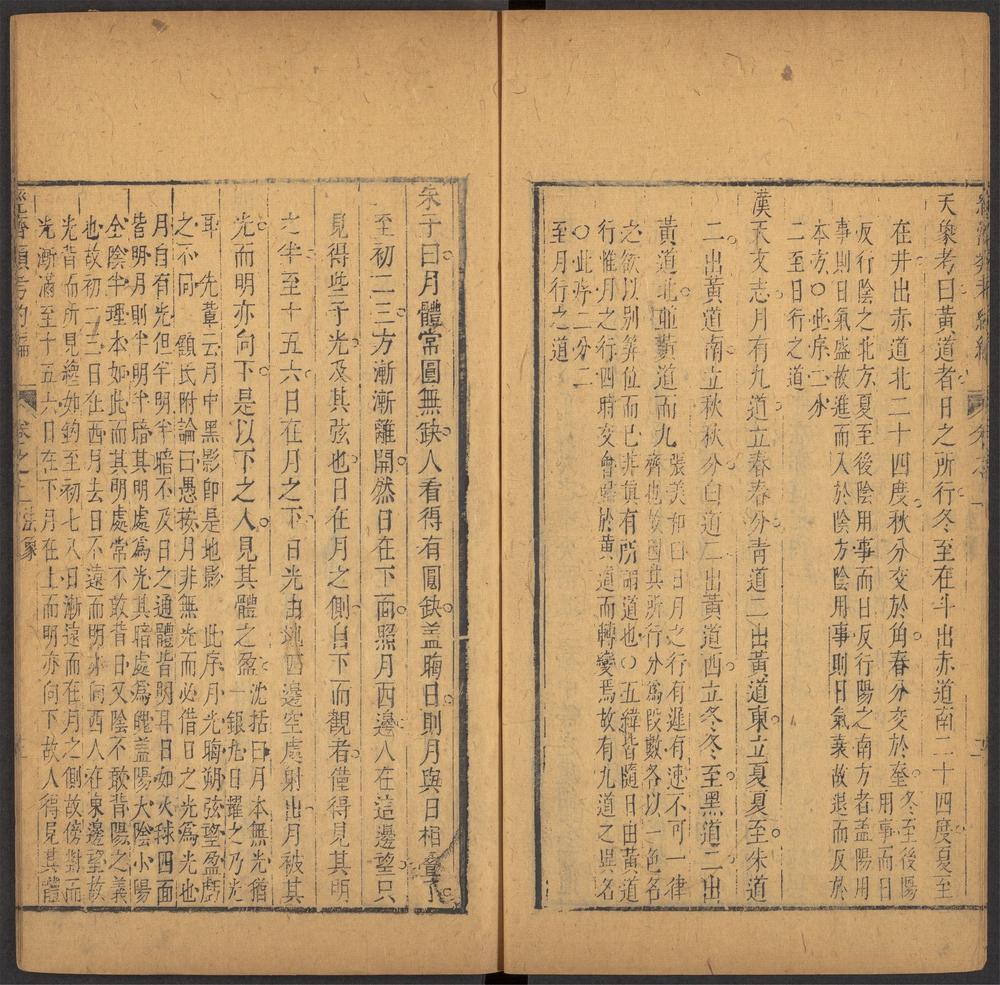 天象考曰黃道者日之所行冬至在斗出赤道南二十四度夏至
在井出赤道北二十四度秋分交於角春分交於奎
冬至後陽
用事而日
反行陰之北方夏至後陰用事而日反行陽之南方者蓋陽用
事則日氣盛故進而入於陰方陰用事則日氣衰故退而反於
本方○此序二分
二至日行之道
漢天文志月有九道立春春分青道二出黃道東立夏夏至朱道
二出黃道南立秋秋分白道二出黃道西立冬冬至黑道二出
黃道北並黃道而九
張美和曰日月之行有遲有速不可一律
齊也故因其所行分爲段數各以一色名
之欲以別筭位而已非真有所謂道也○五緯皆隨日由黃道
行惟月之行四時交會歸於黃道而轉變焉故有九道之異名
○此序二分二
至月行之道
朱子曰月體常圓無缺人看得有圓缺蓋晦日則月與日相疊了
至初二三方漸漸離開然日在下面照月四邊人在這邊望只
見得些子光及其弦也日在月之側自下而觀者僅得見其明
之半至十五六日在月之下日光由地四邊空處射出月被其
光而明亦向下是以下之人見其體之盈
沈括曰月本無光猶
一銀丸日耀之乃光
耳 先輩云月中黑影卽是地影 此序月光晦朔弦望盈虧
之不同 顧氏附論曰愚按月非無光而必借日之光爲光也
月自有光但半明半暗不及日之通體皆明耳日如火毬四面
皆明月則半明半暗其明處爲光其暗處爲魄蓋陽大陰小陽
全陰半理本如此而其明處常不敢背日又陰不敢背陽之義
也故初二三日在西月去日不遠而明亦向西人在東邊望故
光背而所見纔如鉤至初七八日漸遠而在月之側故傍對而
光漸滿至十五六日在下月在上而明亦向下故人得見其體
經濟類考約編 卷之一 法象